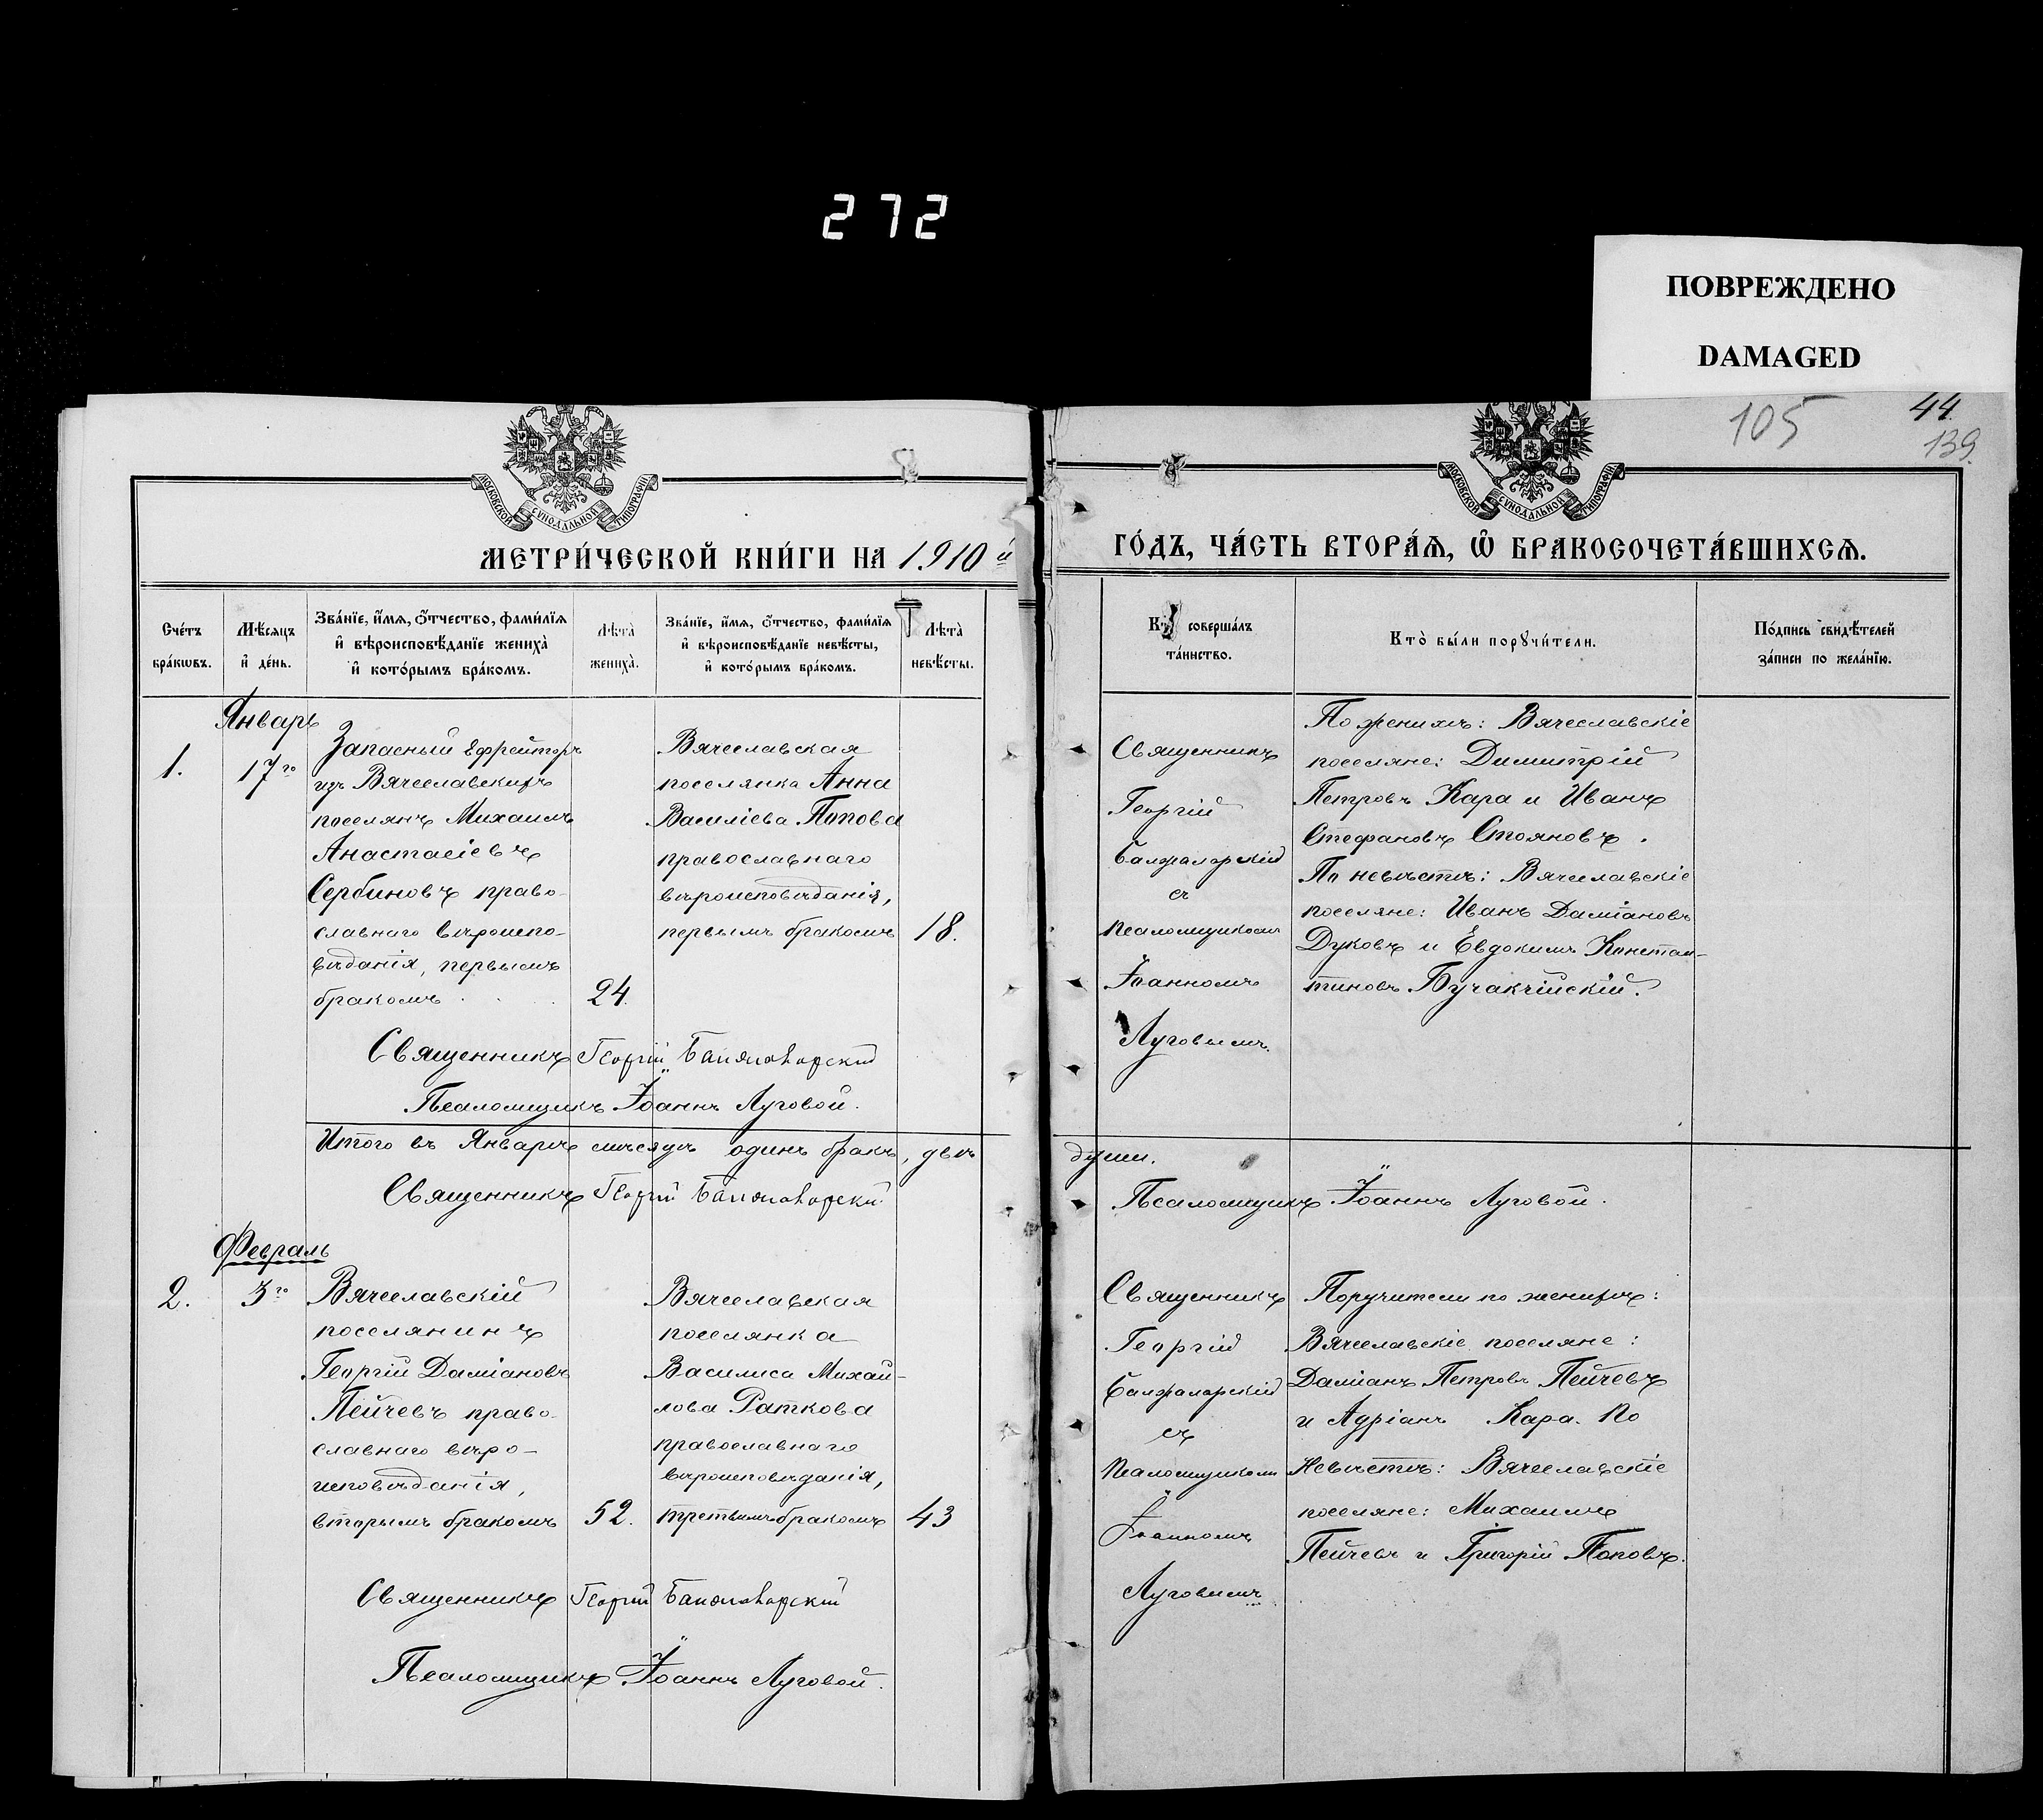 272
ПОВРЕЖДЕНО
DAMAGED
105
44
139.
МОСКОВСКОЙ СѴНОДАЛЬНОЙ ТИПОГРАФІИ
МОСКОВСКОЙ СѴНОДАЛЬНОЙ ТИПОГРАФІИ
МЕТРИ́ЧЕСКОЙ КНИ́ГИ НА 1910 й
ГО́ДЪ, ЧА́СТЬ ВТОРА́Ѧ, Ѽ БРАКОСОЧЕТА́ВШИХСѦ.
Сче́тъ бра́кѡвъ.
Мѣ́сѧцъ и҆ де́нь.
Зва́нїе, и҆́мѧ, ѻ҆́тчество, фами́лїѧ и҆ вѣроисповѣ́данїе жениха̀ и҆ кото́рымъ бра́комъ.
Лѣта̀ жениха̀.
Зва́нїе, и҆́мѧ, ѻ҆́тчество, фами́лїѧ и҆ вѣроисповѣ́данїе невѣ́сты, и҆ кото́рымъ бра́комъ.
Лѣта̀ невѣ́сты.
Кто̀ соверша́лъ та́инство.
Кто̀ бы́ли порꙋчи́тели.
По́дпись свидѣ́телей за́писи по жела́нїю.
Январь
1.
17го
Запасный ефрейторъ
изъ Вячеславскихъ
поселянъ Михаилъ
Анастасіевъ
Сербиновъ право-
славнаго вѣроиспо-
вѣданія, первымъ
бракомъ
24.
Вячеславская
поселянка Анна
Василіева Попова
православнаго
вѣроисповѣданія,
первымъ бракомъ
18.
Священникъ
Георгій
съ
псаломщикомъ
Іоанномъ
Луговымъ.
По женихѣ: Вячеславскіе
поселяне: Димитрій
Петровъ Кара и Иванъ
Стефановъ Стояновъ.
По невѣстѣ: Вячеславскіе
поселяне: Иванъ Даміановъ
Дуковъ и Евдокимъ Констан-
тиновъ Бучакчійскій.
Священникъ Георгій
Псаломщикъ Іоаннъ Луговой.
Итого въ Январѣ мѣсяцѣ одинъ бракъ, двѣ
души.
Священникъ Георгій
Псаломщикъ Іоаннъ Луговой.
Февраль
2.
3го
Вячеславскій
поселянинъ
Георгій Даміановъ
Пейчевъ право-
славнаго вѣро-
исповѣданія,
вторымъ бракомъ
52.
Вячеславская
поселянка
Василиса Михай-
лова Раткова
православнаго
вѣроисповѣданія,
третьимъ бракомъ
43
Священникъ
Георгій
съ
псаломщикомъ
Іоанномъ
Луговымъ
Поручители по женихѣ:
Вячеславскіе поселяне:
Даміанъ Петровъ Пейчевъ
и Адріанъ Кара. По
невѣстѣ: Вячеславскіе
поселяне: Михаилъ
Пейчевъ и Григорій Поповъ.
Священникъ Георгій
Псаломщикъ Іоаннъ Луговой.